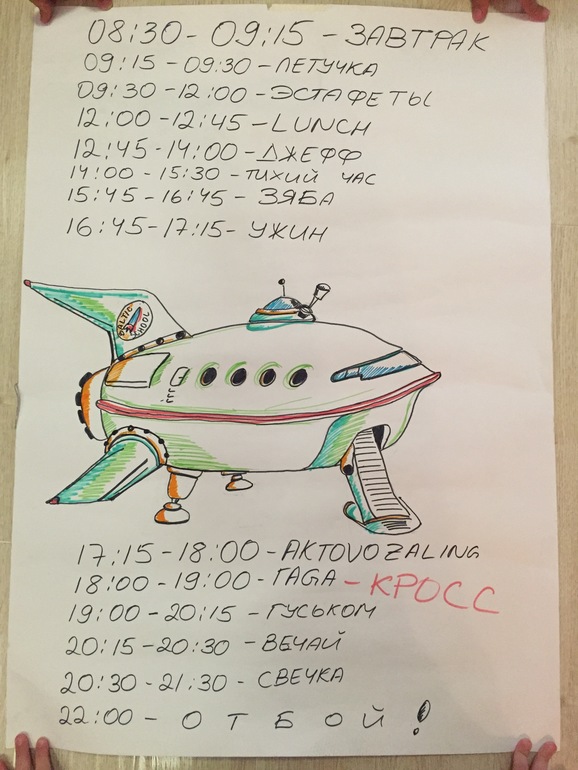 08:30 - 09:15 - ЗАВТРАК
09:15 - 09:30 - ЛЕТУЧКА
09:30 - 12:00 - ЭСТАФЕТЫ
12:00 - 12:45 - LUNCH
12:45 - 14:00 - ДЖЕФФ
14:00 - 15:30 - ТИХИЙ ЧАС
15:45 - 16:45 - ЗЯБА
16:45 - 17:15 - УЖИН
BALTIC
SCHOOL
17:15 - 18:00 - AKTOVOZALING
18:00 - 19:00 - ГАGA - КРОСС
19:00 - 20:15 - ГУСЬКОМ
20:15 - 20:30 - ВЕЧАЙ
20:30 - 21:30 - СВЕЧКА
22:00 - О Т Б О Й !